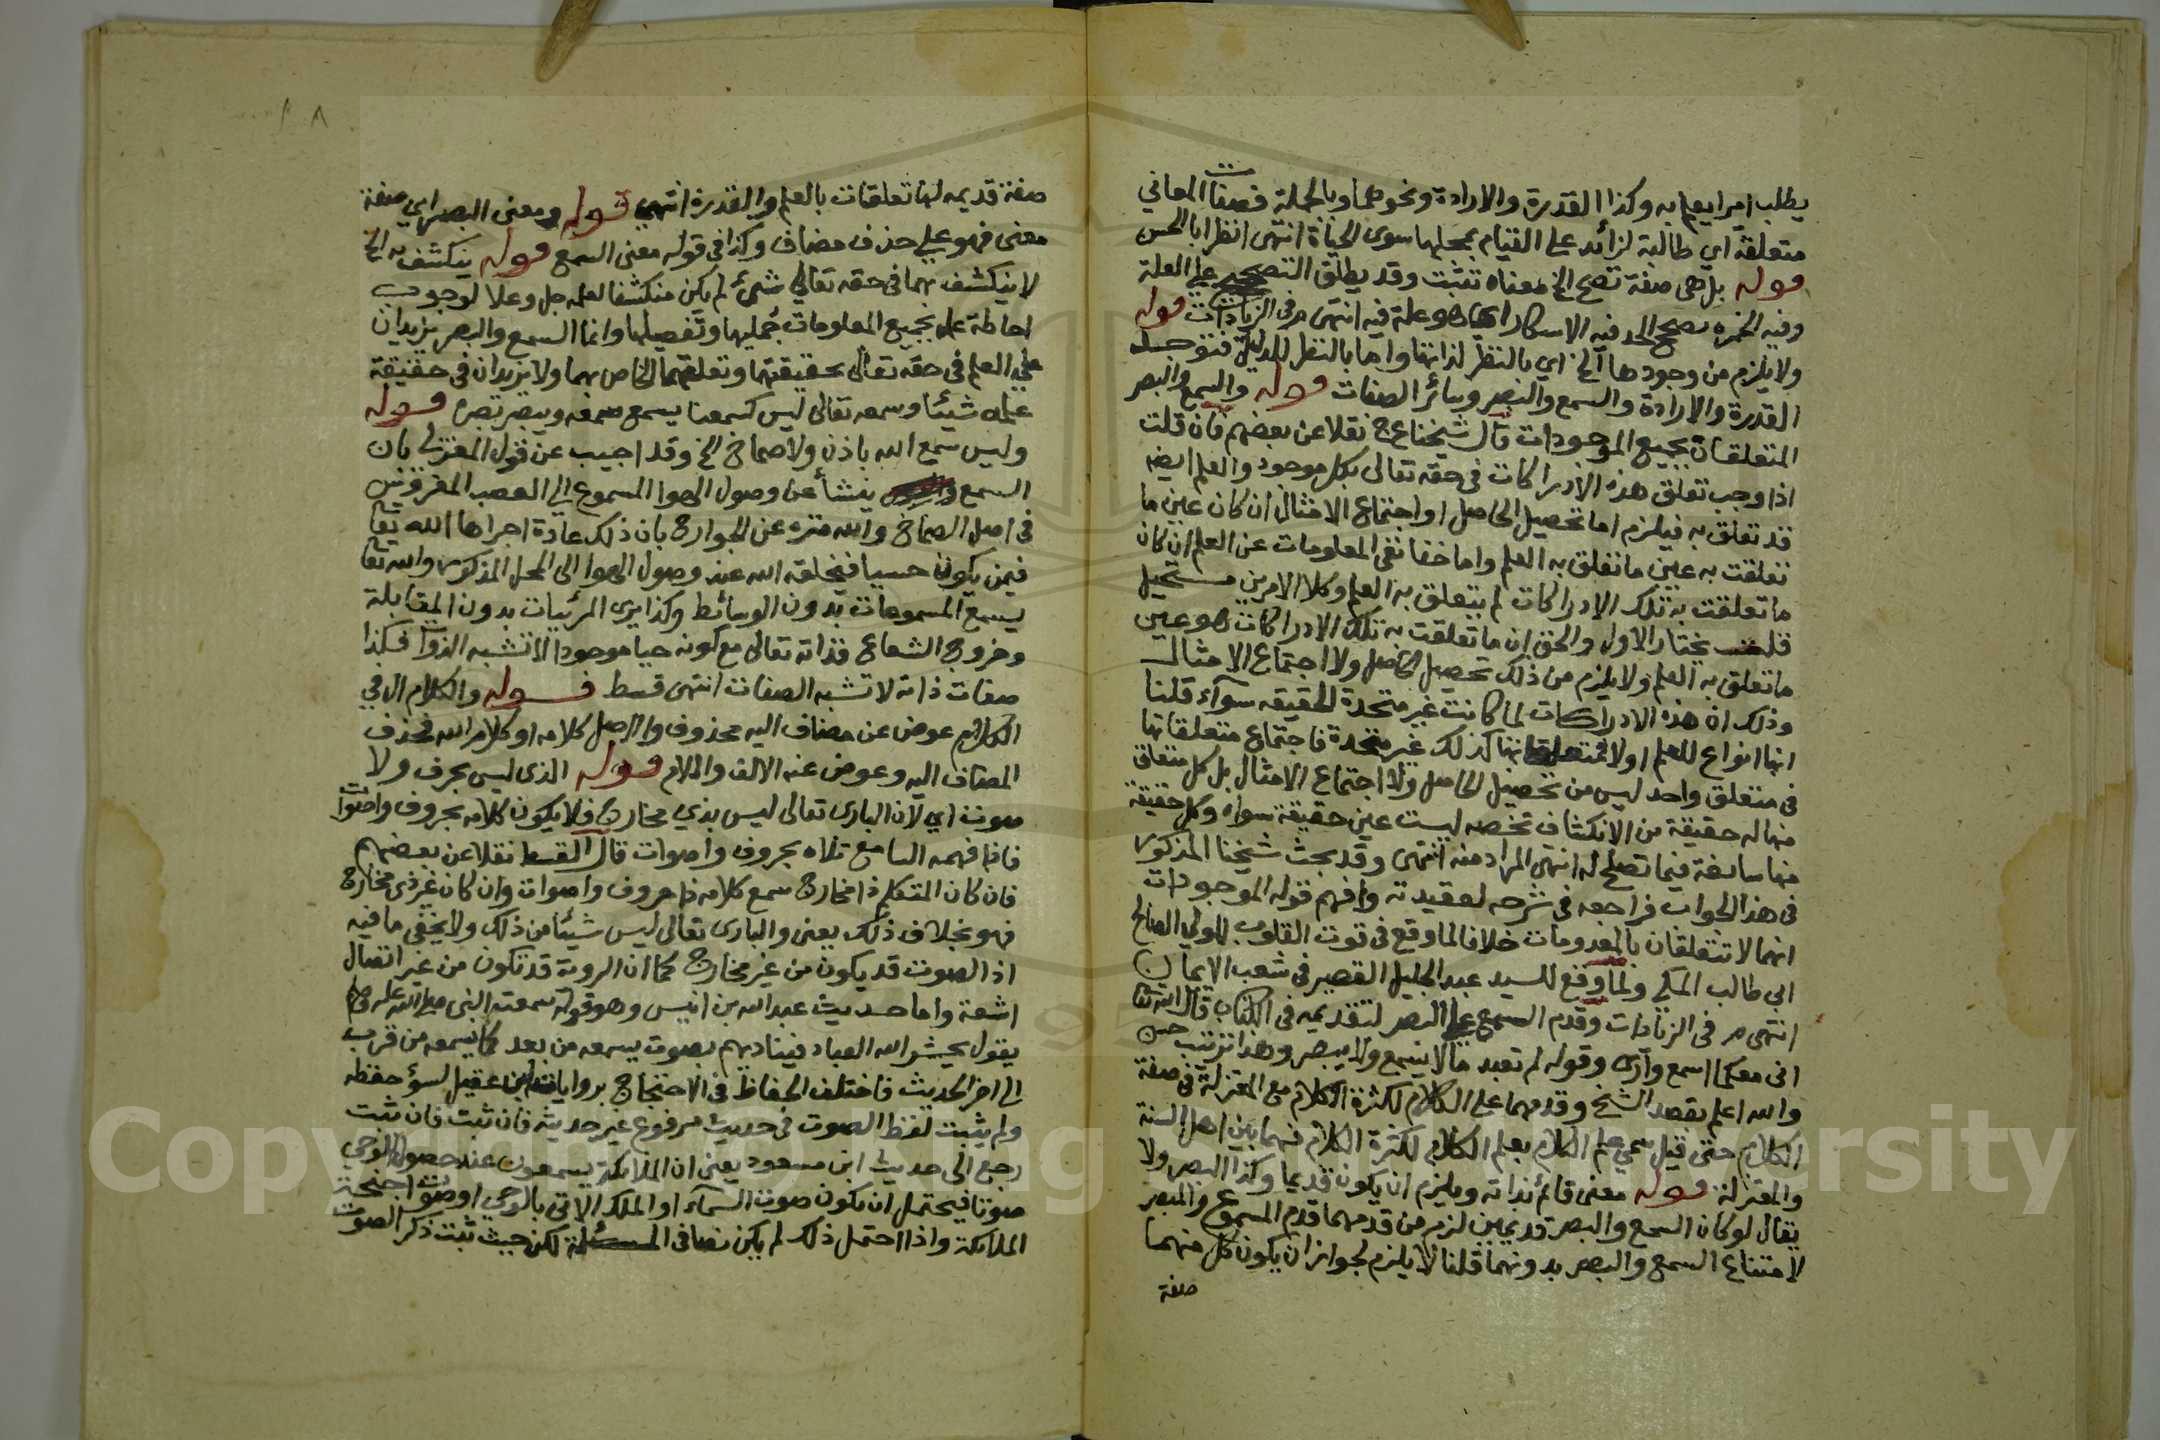 يطلب امرا يعلم به وكذا القدرة والارادة ونحوهما وبالجملة فصفات المعاني
متعلقة اي طالبة لزائد على القيام بمحلها سوى الحياة انتهى انظر ابا الحسن
قوله بل هي صفة تصحح الخ معناه تثبت وقد يطلق التصحيح على العلة
وفيه الخمرة تصحح الحد فيه الاسكار اي هو علة فيه انتهى م في الزيادات قوله
ولا يلزم من وجودها الخ اي بالنظر لذاتها واما بالنظر للدليل فتوجد
القدرة والارادة والسمع والبصر وسائر الصفات قوله والسمع والبصر
المتعلقان بجميع الموجودات قال شيخنا عج نقلا عن بعضهم فان قلت
اذا وجب تعلق هذه الادراكات في حقه تعالى بكل موجود والعلم ايضه
قد تعلق به فيلزم اما تحصيل الحاصل او اجتماع الامثال ان كان عين ما
تعلقت به عين ما تعلق به العلم واما خفا نفى المعلومات عن العلم ان كان
ما تعلقت به تلك الادراكات لم يتعلق به العلم وكلا الامرين مستحيل
قلت يختار الاول والحق ان ما تعلقت به تلك الادراكات هو عين
ما تعلق به العلم ولا يلزم من ذلك تحصيل الحاصل ولا اجتماع الامثال
وذلك ان هذه الادراكات لما كانت غير متحدة الحقيقه سواء قلنا
انها انواع للعلم اولا فمتعلقاتها كذلك غير متحدة فاجتماع متعلقاتها
في متعلق واحد ليس من تحصيل الحاصل ولا اجتماع الامثال بل كل متعلق
منها له حقيقة من الانكشاف تخصه ليست عين حقيقة سواه وكل حقيقة
منها سائغة فيما تصلح له انتهى المراد منه انتهى وقد بحث شيخنا المذكور
في هذا الجواب فراجعه في شرحه لعقيدته وافهم قوله الموجودات
انهما لا تتعلقان بالمعدومات خلافا لما وقع في قوت القلوب للولي الصالح
ابي طالب المكي ولما وقع للسيد عبد الجليل القصير في شعب الايمان
انتهى م في الزيادات وقدم السمع على البصر لتقديمه في الكتاب قال الله تعا
انني معكما اسمع وارى وقوله لم تعبد ما لا يسمع ولا يبصر وهذا ترتيب حسن
والله اعلم بقصد الشيخ وقدمهما على الكلام لكثرة الكلام مع المعتزلة في صفة
الكلام حتى قيل سمي علم الكلام بعلم الكلام لكثرة الكلام فيها بين اهل السنة
والمعتزلة قوله معنى قائم بذاته ويلزم ان يكون قديما وكذا البصر ولا
يقال لو كان السمع والبصر قديمين لزم من قدمهما قدم المسموع والمبصر
لامتناع السمع والبصر بدونهما قلنا لا يلزم لجواز ان يكون كل منهما
صفة
٨
صفة قديمه لها تعلقات بالعلم والقدرة انتهى قوله ومعنى البصر اي صفة
معنى فهو على حذف مضاف وكذا في قوله معنى السمع قوله ينكشف به الخ
لا ينكشف بهما في حقه تعالى شئ لم يكن منكشفا لعلمه جل وعلا لوجوب
احاطة علمه بجميع المعلومات جمليها وتفصيلها وانما السمع والبصر يزيدان
على العلم في حقه تعالى بحقيقتهما وتعلقهما الخاص بهما ولا يزيدان في حقيقة
علمه شيئا وسمعه تعالى ليس كسمعنا يسمع سمعه ويبصر بصره قوله
وليس سمع الله باذن ولا صماخ الخ وقد اجيب عن قول المعتزلي بان
السمع ينشأ عن وصول الهوا المسموع الى العصب المفروش
في اصل الصماخ والله منزه عن الجوارح بان ذلك عادة اجراها الله تعا
فيمن يكون حسيا فيخلقه الله عند وصول الهوا الى المحل المذكور والله تعا
يسمع المسموعات بدون الوسائط وكذا يرى المرئيات بدون المقابلة
وخروج الشعاع فذاته تعالى مع كونه حيا موجودا لا تشبه الذوات فكذا
صفات ذاته لا تشبه الصفات انتهى قسط قوله والكلام ال في
الكلام عوض عن مضاف اليه محذوف والاصل كلامه او كلام الله فحذف
المضاف اليه وعوض عنه الالف واللام قوله الذي ليس بحرف ولا
صوت اي لان البارى تعالى ليس بذي مخارج فلا يكون كلامه بحروف واصوات
فاذا فهمه السامع تلاه بحروف واصوات قال القسط نقلا عن بعضهم
فان كان المتكلم ذا مخارج سمع كلامه ذا حروف واصوات وان كان غير ذي مخارج
فهو بخلاف ذلك يعني والبارى تعالى ليس شيئا من ذلك ولا يخفى ما فيه
اذ الصوت قد يكون من غير مخارج كما ان الروية قد تكون من غير اتصال
اشعة واما حديث عبد الله بن انيس وهو قوله سمعت النبي صلى الله عليه وسلم
يقول يحشر الله العباد فيناديهم بصوت يسمعه من بعد كما يسمعه من قرب
الى اخر الحديث فاختلف الحفاظ في الاحتجاج بروايات ابن عقيل لسؤ حفظه
ولم يثبت لفظ الصوت في حديث مرفوع غير حديثه فان ثبت فان ثبت
رجع الى حديث ابن مسعود يعني ان الملائكة يسمعون عند حصول الوحي
صوتا فيحتمل ان يكون صوت السماء او الملك الاتي بالوحي او صوت اجنحة
الملائكة واذا احتمل ذلك لم يكن نصا في المسئلة لكن حيث ثبت ذكر الصوت